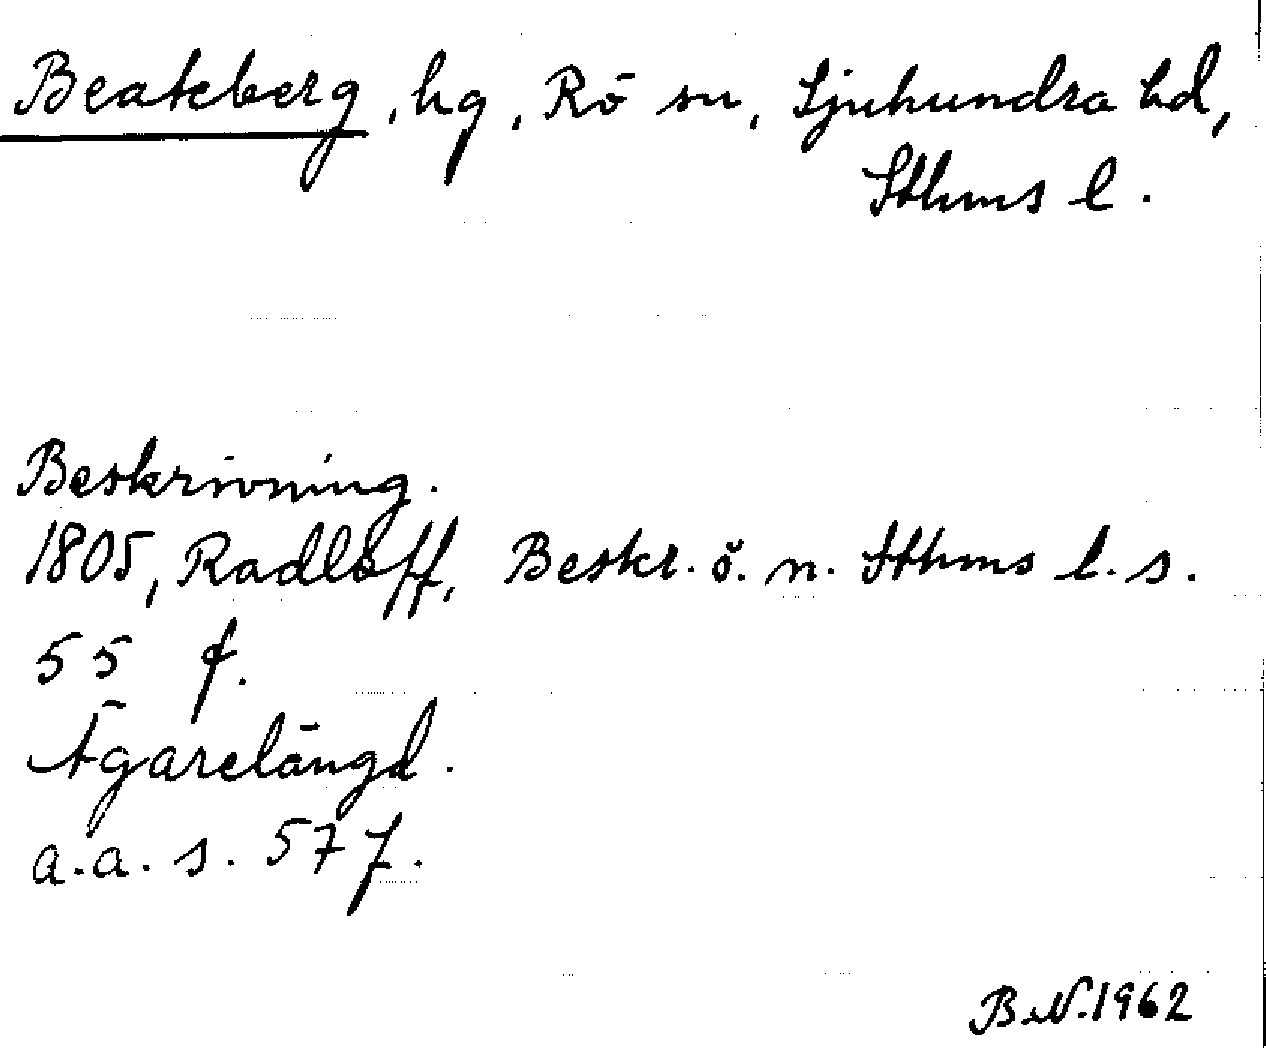 Beateberg, hg, Rö sn, Sjuhundra hd,
Sthms l.
Beskrivning.
1805, Radloff, Beskr. ö. n. Sthms l. s.
55 f.
Ägarelängd.
a.a. s. 57 f.
B.N. 1962